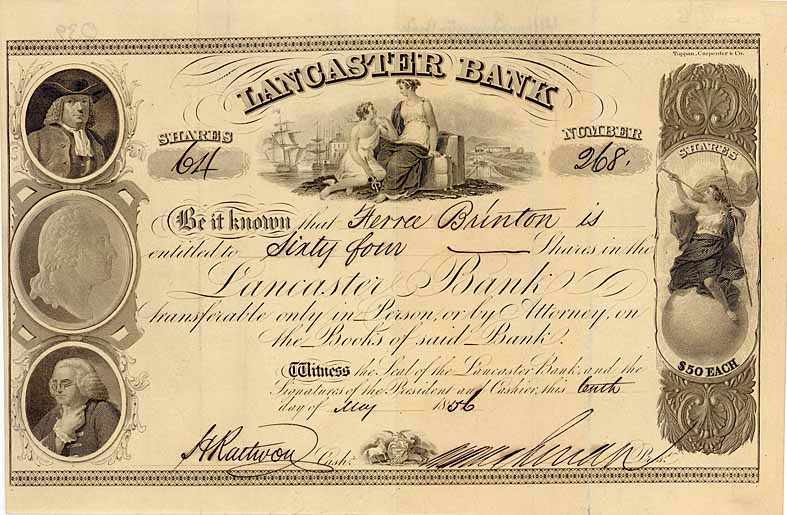 Tappan, Carpenter & Co.
LANCASTER BANK
SHARES
64
NUMBER
268.
SHARES
$50 EACH
Be it known that Ferree Brinton is
entitled to Sixty four Shares in the
Lancaster Bank
transferable only in Person, or by Attorney, on
the Books of said Bank.
Witness the Seal of the Lancaster Bank, and the
Signatures of the President and Cashier, this tenth
day of May 1856
Cash.